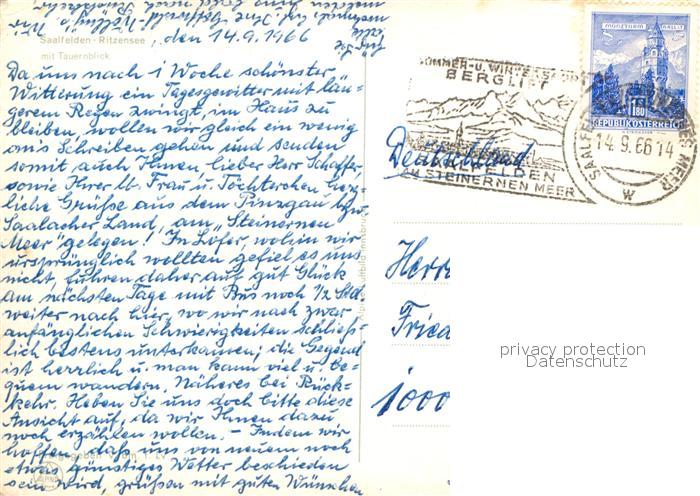 Saalfelden - Ritzensee
mit Tauernblick
, den 14.9.1966
Da uns nach 1 Woche schönster
Witterung ein Tagesgewitter mit län-
gerem Regen zwingt, im Haus zu
bleiben, wollen wir gleich ein wenig
ans Schreiben gehen und senden
somit, auch Ihnen, lieber Herr Schaffer,
sowie Ihrer lb. Frau u. Töchterchen herz-
liche Grüße aus dem Pinzgau bzw.
Saalacher Land, am "Steinernen
Meer" gelegen! In Lofer, wohin wir
ursprünglich wollten gefiel es uns
nicht, fuhren daher auf gut Glück
am nächsten Tage mit Bus noch 1/2 Std.
weiter nach hier, wo wir nach zwar
anfänglichen Schwierigkeiten schließ-
lich bestens unterkamen; die Gegend
ist herrlich u. man kann viel u. be-
quem wandern. Näheres bei Rück-
kehr. Heben Sie uns doch bitte diese
Ansicht auf, da wir Ihnen dazu
noch erzählen wollen. - Indem wir
hoffen, daß uns von neuem noch
etwas günstiges Wetter beschieden
sein wird, grüßen mit guten Wünschen
SOMMER- U. WINTERSAISON
BERGLIFT
SAALFELDEN
AM STEINERNEN MEER
MÜNZTURM HALL i. T.
S 1.80
REPUBLIK ÖSTERREICH
14.9.66 14
Deutschland
Herrn
Fried
1000
privacy protection
Datenschutz